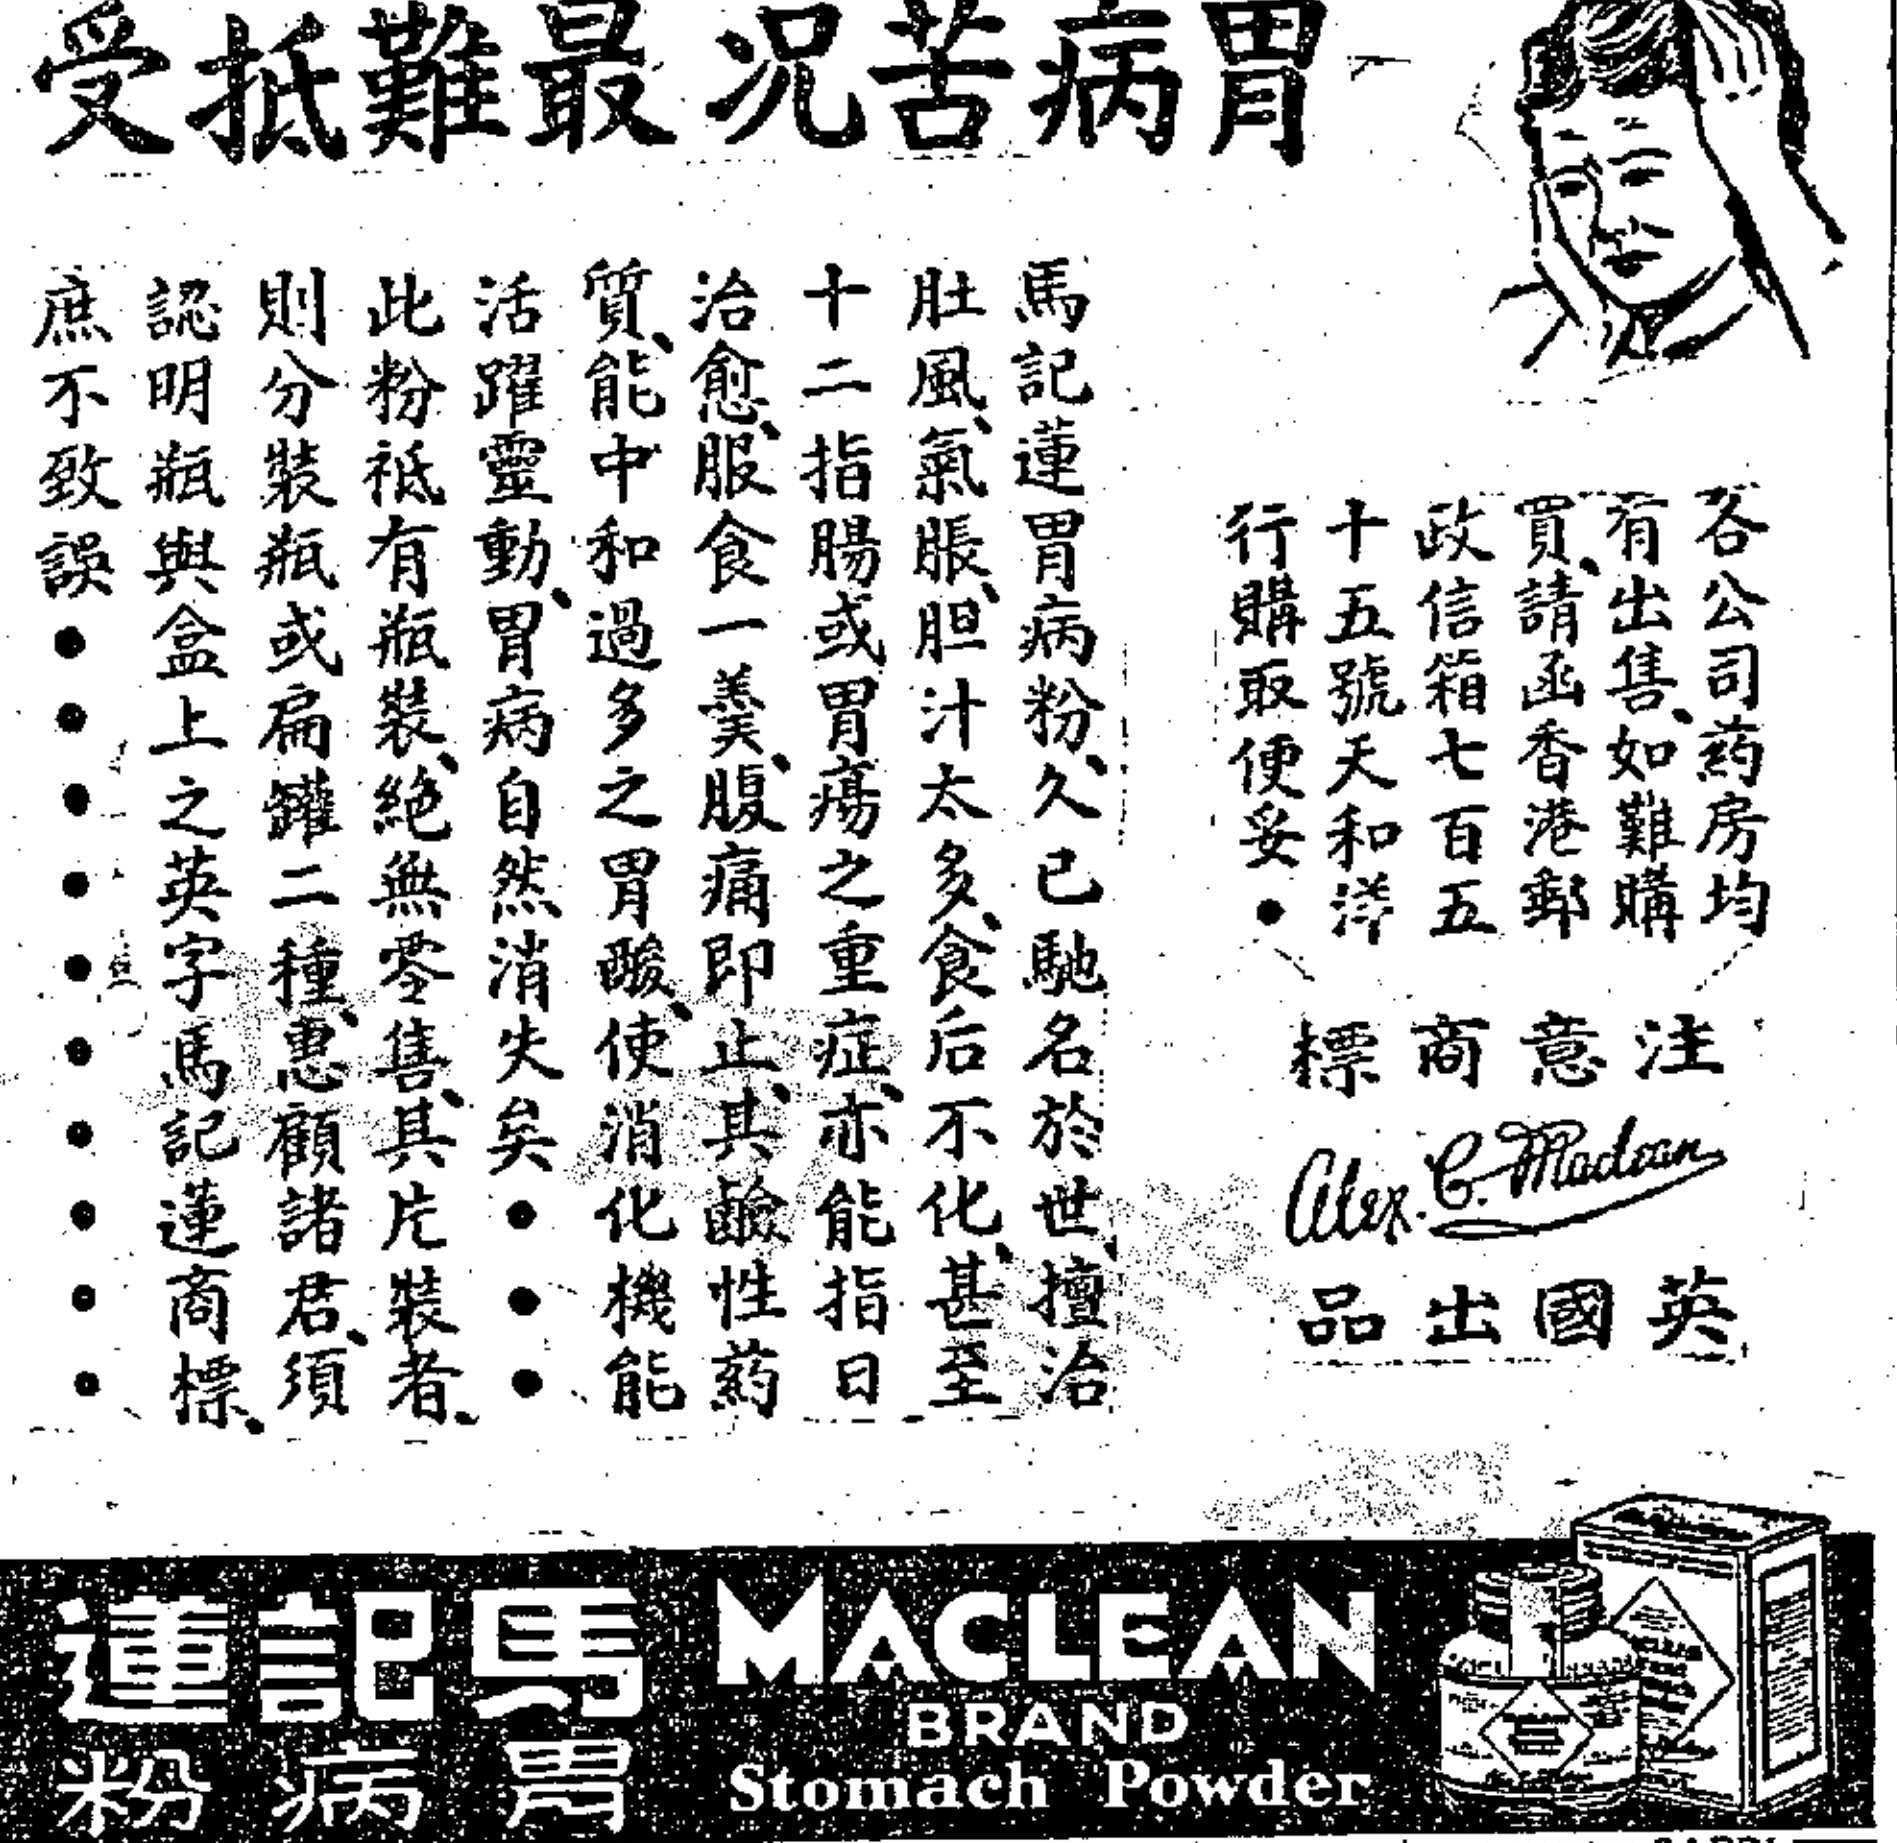 胃病苦况最難抵受
各公司葯房均
有出售、如難購
買、請函香港郵
政信箱七百五
十五號天和洋
行購取便妥●
注意商標
Alex. C. Maclean
英國出品
馬記蓮胃病粉、久已馳名於世、擅治
肚風、氣脹、胆汁太多、食后不化、甚至
十二指腸或胃瘍之重症、亦能指日
治愈、服食一羹、腹痛即止、其鹼性葯
質、能中和過多之胃酸、使消化機能
活躍靈動、胃病自然消失矣●●●
此粉祗有瓶裝、絕無零售、其片裝者、
則分裝瓶或扁罐二種、惠顧諸君、須
認明瓶與盒上之英字馬記蓮商標、
庶不致誤●●●●●●●●●●
馬記蓮
胃病粉
MACLEAN
BRAND
Stomach Powder